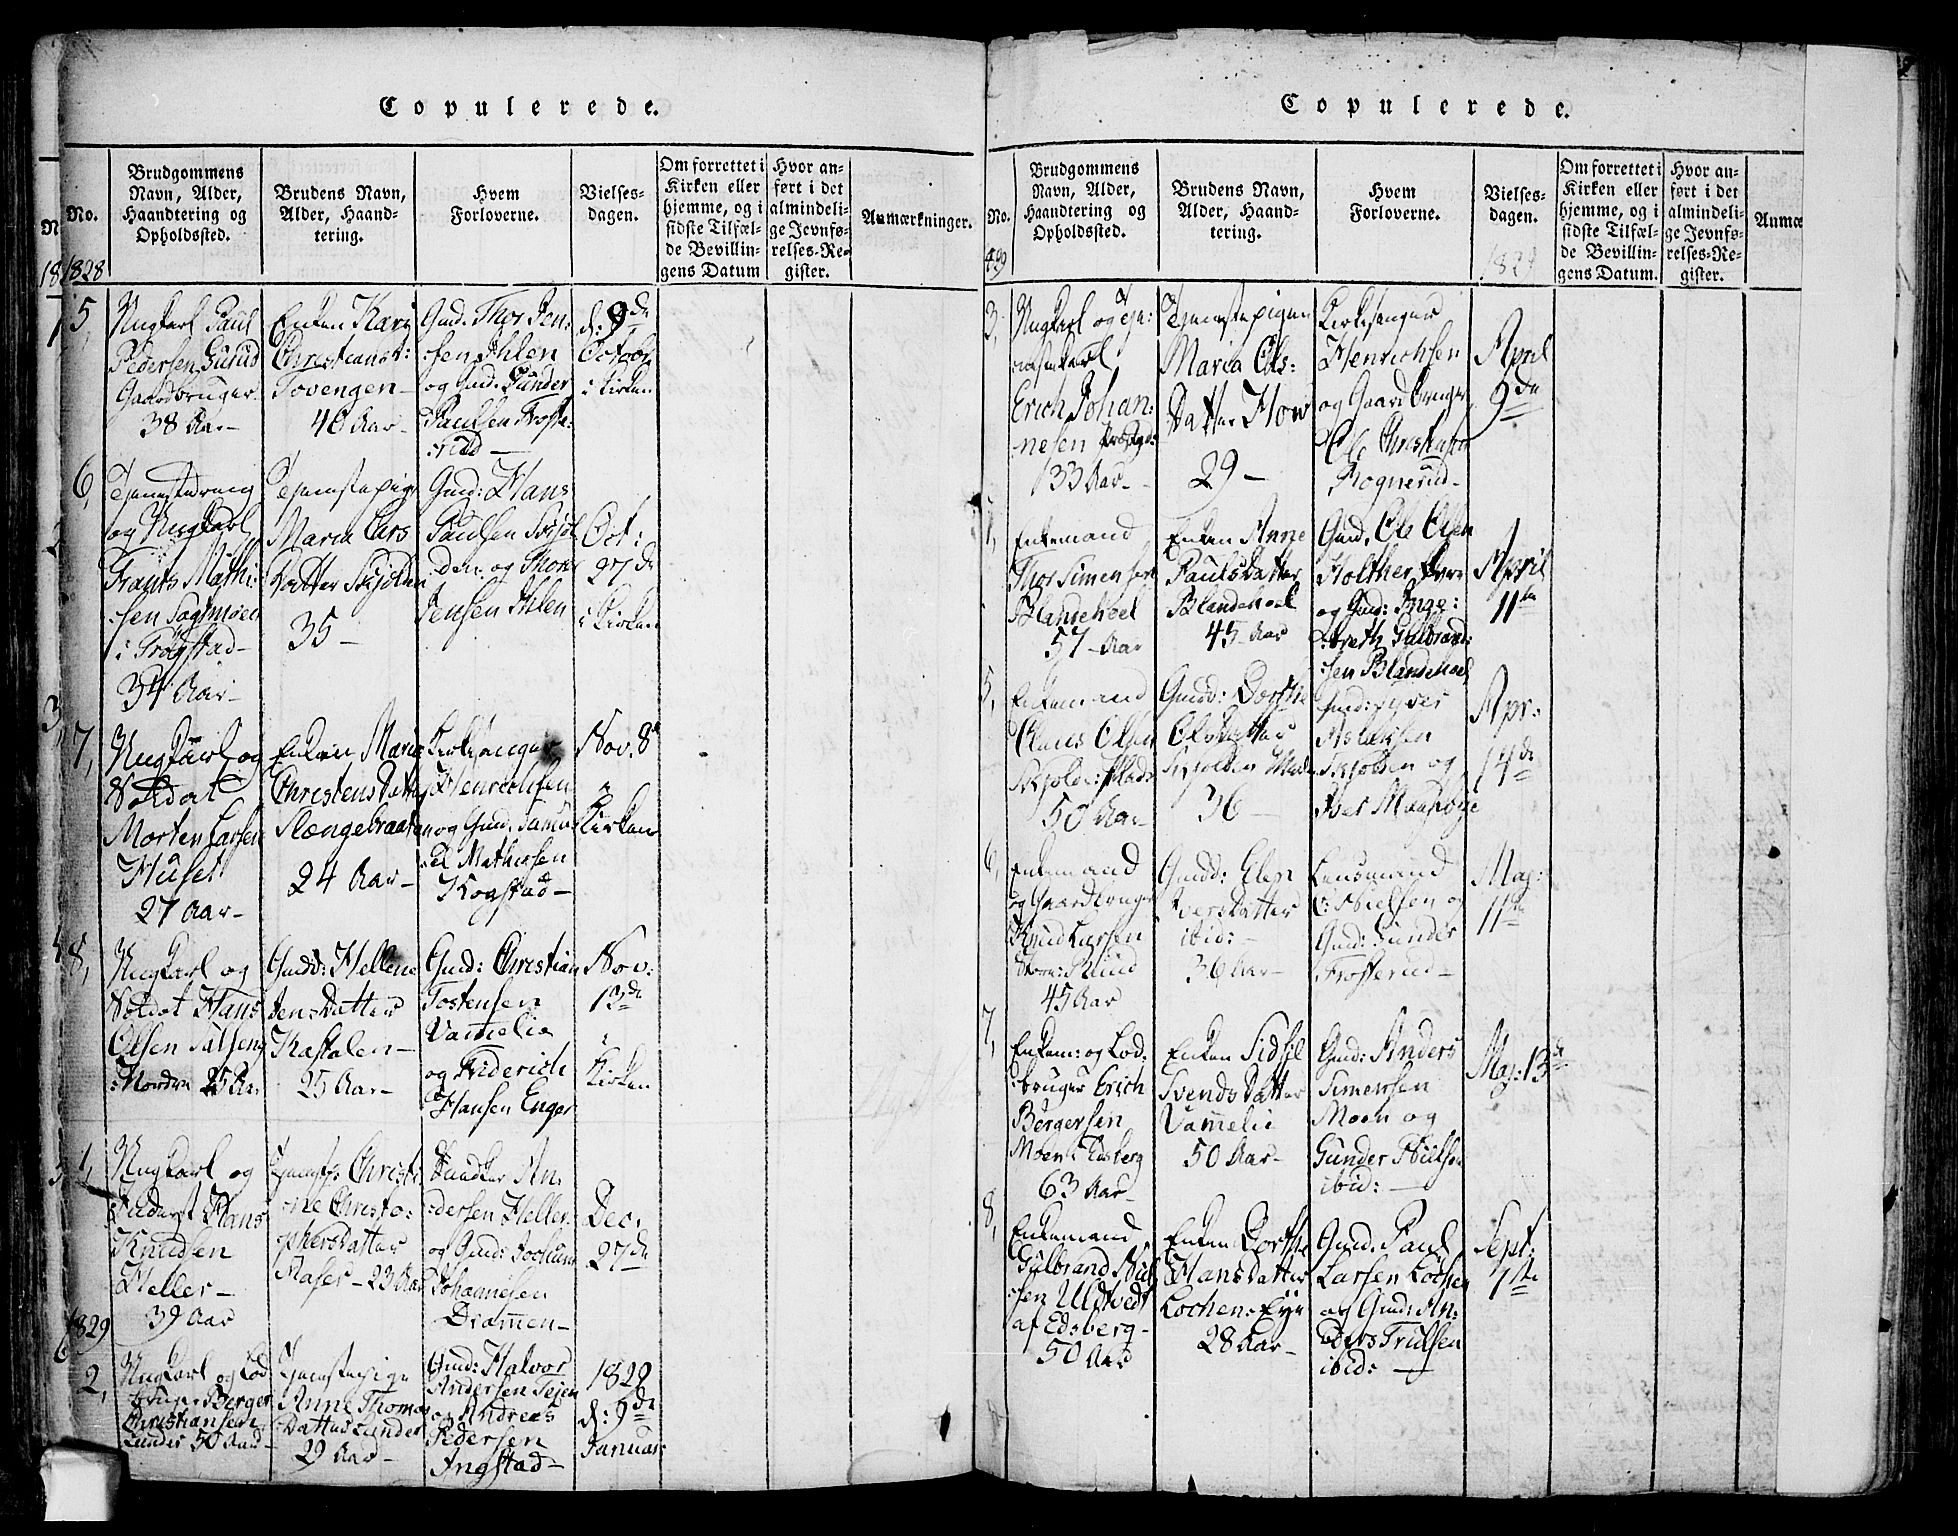 Copulerede.
No.
Brudgommens
Navn, Alder,
Haandtering og
Opholdssted.
Brudens Navn,
Alder, Haand-
tering.
Hvem
Forloverne.
Vielses-
dagen.
Om forrettet i
Kirken eller
hjemme, og i
sidste Tilfæl-
de Bevillin-
gens Datum
Hvor an-
ført i det
almindeli-
ge Jevnfø-
relses-Re-
gister.
Anmærkninger.
1828
5,
Ungkarl Paul
Pedersen Surud
Gaardbruger
38 Aar
Enken Kari
Christians:
Tovengen
40 Aar
Gmd: Thor Jen:
sen Ihlen
og Gmd. Gunder
Paulsen Froste:
rud
d: 9de
Octobr
i Kirken
6,
Tjenestedreng
og Ungkarl
Frants Mathi:
sen Sagmoen
i Trøgstad
34 Aar
Tjenestepige
Maria Lars
Datter Skjolden
35
Gmd: Hans
Paulsen Skjol
den og Thor
Jensen Ihlen
Oct:
27de
i Kirken
7,
Ungkarl og
Soldat
Morten Larsen
Huset
27 Aar
Enken Maria
Christens Datter
Slængebraaten
24 Aar
Kirkesanger
Henrichsen
og Gmd. Samu
el Mathisen
Kogstad
Nov. 8
i
Kirken
8,
Ungkarl og
Soldat Hans
Olsen
Nordre 25 Aar
Gmdd: Hellene
Jens Datter
Kastalen
25 Aar
Gmd: Christian
Tostensen
Vamelie
og Friderich
Hansen Enger
Nov:
13de
i
Kirken
1,
Ungkarl og
Hans
Knudsen
Heller
39 Aar
Tjenestp: Christi
ne Christo:
phersdatter
23 Aar
An:
dersen Heller
og Gmd: Jochum
Johannesen
Dramen
Dec.
27de
1829
2,
Ungkarl og Lod
bruger Berger
Christiansen
Lunder 50 Aar
Tjenestepige
Anne Thomas
Datter Lunder
29 Aar
Gmd: Halvor
Andersen Tejen
og Andreas
Pedersen
Ingstad
1829
d: 9de
Januar
Copulerede.
No.
Brudgommens
Navn, Alder,
Haandtering og
Opholdssted.
Brudens Navn,
Alder, Haand-
tering.
Hvem
Forloverne.
Vielses-
dagen.
Om forrettet i
Kirken eller
hjemme, og i
sidste Tilfæl-
de Bevillin-
gens Datum.
Hvor an-
ført i det
almindeli-
ge Jevnfø-
relses-Re-
gister.
Anmæ
1829
3,
Ungkarl og Tje:
nestekarl
Erich Johan:
nesen
33 Aar
Tjenestepigen
Maria Ols:
Datter How
29
Kirkesanger
Henrichsen
og Gaardbruger
Ol. Christensen
Rognerud
April
9de
Enkemand
Thor Simensen
Blandehoel
57 Aar
Enken Anne
Pauls Datter
Blandehoel
45 Aar
Gmd. Ole Olsen
Holther
og Gmd: Inge:
breth Gulbrand:
sen Blandehoel
April
11te
5,
Enkemand
Claus Olsen
50 Aar
Gmdd: Dorthe
Olsdatter
Skjolden
36
Gmd: Syver
Aslaksen
Skjolden og
Apr:
14de
6,
Enkemand
og Gaardbruger
Knud Larsen
45 Aar
Gmdd: Elen
Iversdatter
ibid:
36 Aar
Lensmand
C: Nielsen og
Gmd: Gunder
Frosterud
Maj:
11te
7,
Enkem: og Lod:
bruger Erich
Børgersen
Moen i Edsberg
63 Aar
Enken Sidsil
Svends Datter
Vamelie
50 Aar
Gmd: Anders
Simensen
Moen og
Gunder Nielsen
ibid:
Maj: 13de
8,
Enkemand
Gulbrand Niel
sen Uldtvedt
af Edsberg
50 Aar
Enken Dorthe
Hans Datter
Lochen Eje
28 Aar
Gmd. Paul
Larsen Lochen
og Gmd: An:
ders Trulsen
ibid:
Sept:
7te